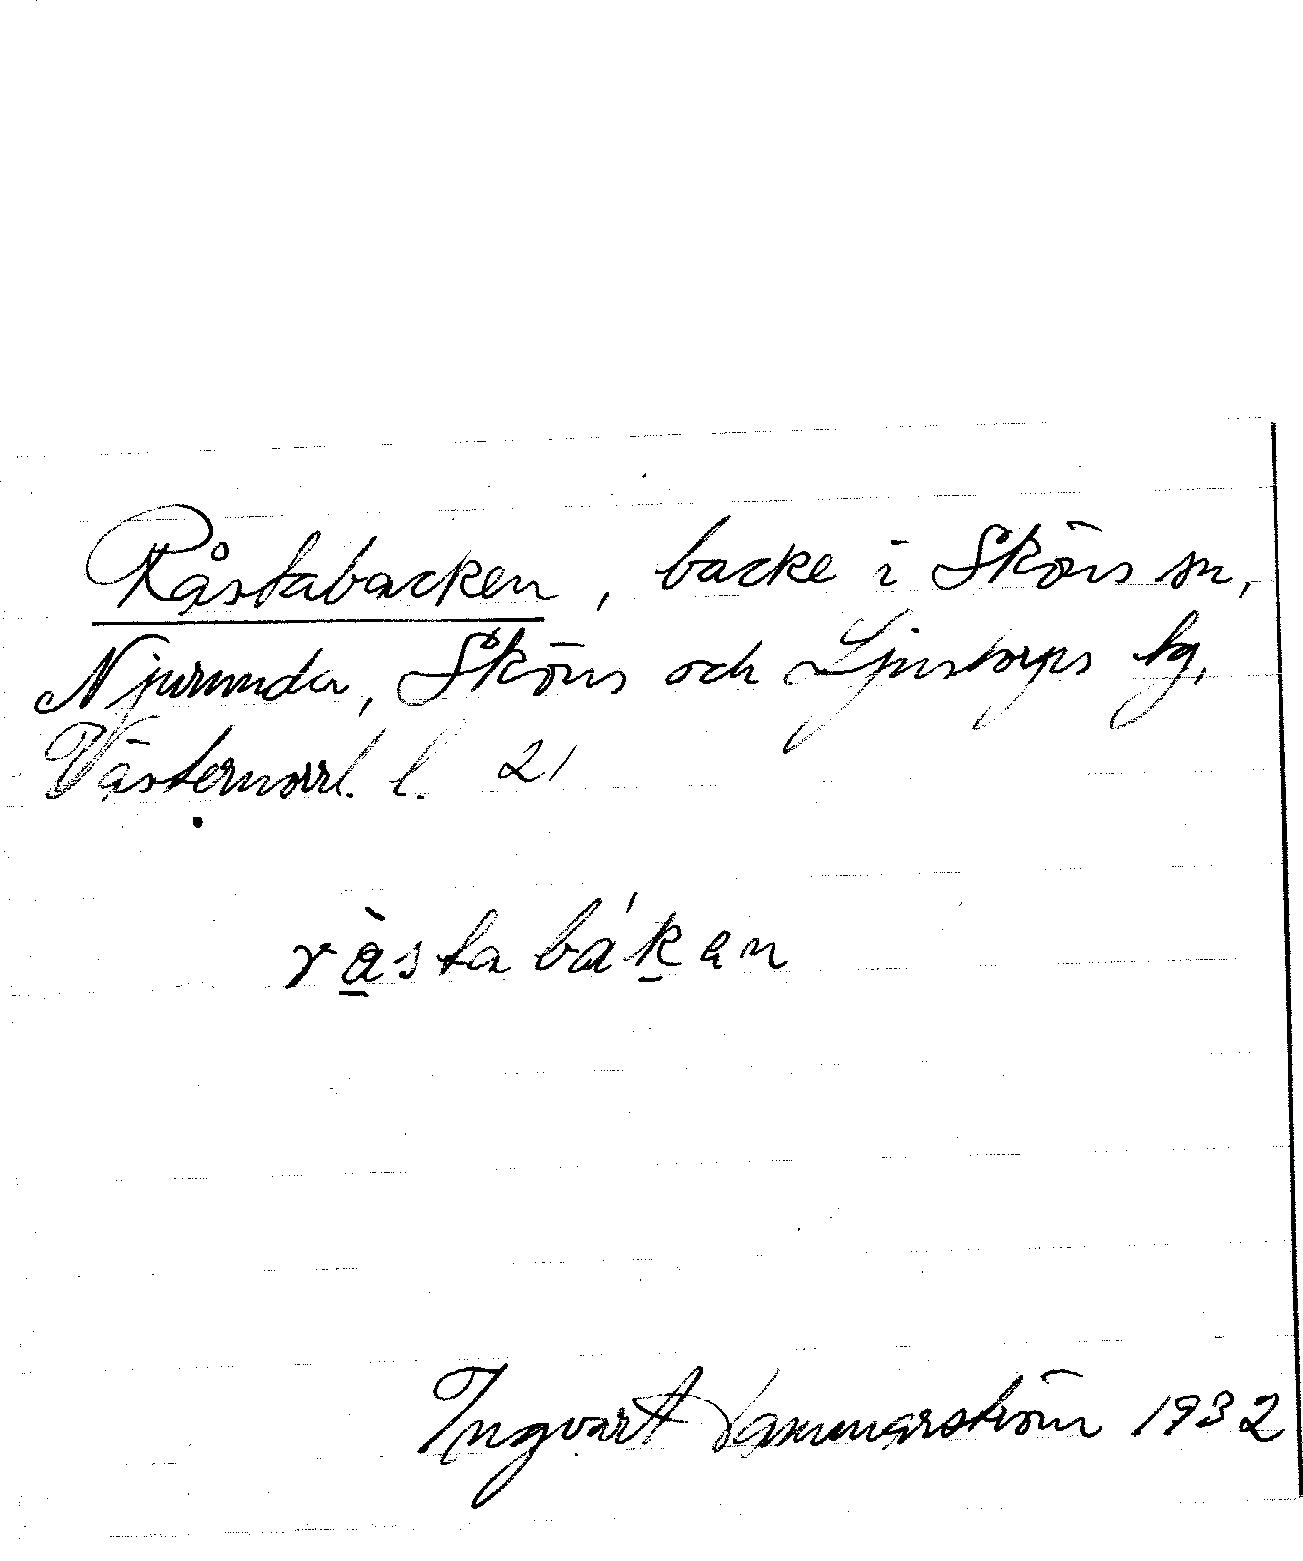 Råstabacken, backe i Sköns sn,
Njurunda, Sköns och Ljustorps tg,
Västernorrl. l. 21
rà̱stabák̠an
Ingvart Dammarström 1932